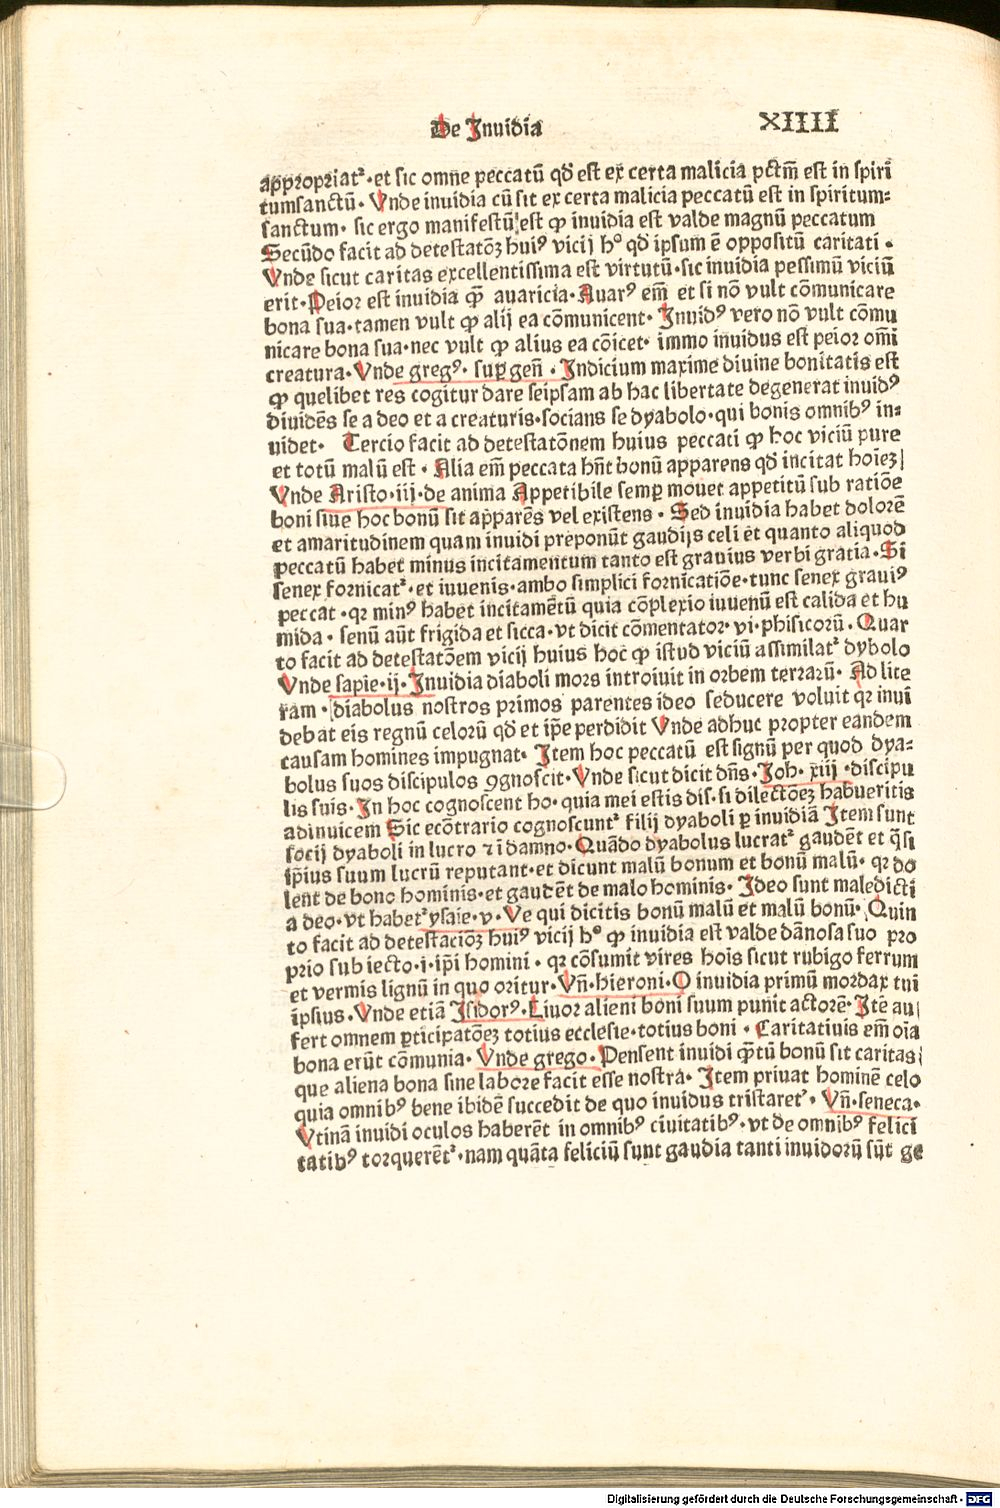 De Inuidia
XIIII
appropriat᷑·et sic omne peccatū qd̄ est ex certa malicia pctm̄ est in spiri
tumsanctū· Vnde inuidia cū sit ex certa malicia peccatū est in spiritum⸗
sanctum· sic ergo manifestū est ꝙ inuidia est valde magnū peccatum
Secūdo facit ad detestatōꝫ huiꝰ vicij hᵒ qd̄ ipsum ē oppositū caritati·
Vnde sicut caritas excellentissima est virtutū·sic inuidia pessimū viciū
erit·Peior est inuidia qᷓꝫ auaricia·Auarꝰ em̄ et si nō vult cōmunicare
bona sua·tamen vult ꝙ alij ea cōmunicent· Inuidꝰ vero nō vult cōmu
nicare bona sua·nec vult ꝙ alius ea cōicet· immo inuidus est peior om̄i
creatura·Vnde gregꝰ· suꝑ gen̄· Indicium maxime diuine bonitatis est
ꝙ quelibet res cogitur dare seipsam ab hac libertate degenerat inuidꝰ
diuidēs se a deo et a creaturis·socians se dyabolo·qui bonis omnibꝰ in⸗
uidet· Tercio facit ad detestatōnem huius peccati ꝙ hoc viciū pure
et totū malū est· Alia em̄ peccata hn̄t bonū apparens qd̄ incitat hoīeꝫ
Vnde Aristo·iij·de anima Appetibile semꝑ mouet appetitū sub ratiōe
boni siue hoc bonū sit apparēs vel existens· Sed inuidia habet dolorē
et amaritudinem quam inuidi preponūt gaudijs celi et quanto aliquod
peccatū habet minus incitamentum tanto est grauius verbi gratia·Si
senex fornicat᷑·et iuuenis·ambo simplici fornicatiōe·tunc senex grauiꝰ
peccat·qꝛ minꝰ habet incitamētū quia cōplexio iuuenū est calida et hu
mida· senū aūt frigida et sicca·vt dicit cōmentator·vi·phisicorū·Quar
to facit ad detestatōem vicij huius hoc ꝙ istud viciū assimilat᷑ dybolo
Vnde sapie·ij·Inuidia diaboli mors introiuit in orbem terrarū· Ad lite
ram· diabolus nostros primos parentes ideo seducere voluit qꝛ inui
debat eis regnū celorū qd̄ et ip̄e perdidit Vnde adhuc propter eandem
causam homines impugnat· Item hoc peccatū est signū per quod dya⸗
bolus suos discipulos ꝯgnoscit·Vnde sicut dicit dn̄s·Joh·xiij·discipu
lis suis·In hoc cognoscent ho·quia mei estis dis·si dilectōeꝫ habueritis
adinuicem Sic ecōtrario cognoscunt᷑ filij dyaboli ꝑ inuidiā Item sunt
socij dyaboli in lucro ⁊ ī damno·Quādo dyabolus lucrat᷑ gaudēt et q̄si
ip̄ius suum lucrū reputant·et dicunt malū bonum et bonū malū· qꝛ do
lent de bono hominis·et gaudēt de malo hominis· Ideo sunt maledicti
a deo·vt habet᷑ ysaie·v·Ve qui dicitis bonū malū et malū bonū· Quin
to facit ad detestacioꝫ huiꝰ vicij hᵒ ꝙ inuidia est valde dānosa suo pro
prio subiecto·i·ip̄i homini· qꝛ cōsumit vires hoīs sicut rubigo ferrum
et vermis lignū in quo oritur·Vn̄·hieroni·O inuidia primū mordax tui
ip̄sius·Vnde etiā Isidorꝰ·Liuor alieni boni suum punit actorē·Itē au
fert omnem ꝑticipatōeꝫ totius ecclesie·totius boni· Caritatiuis em̄ oīa
bona erūt cōmunia· Vnde grego·Pensent inuidi qᷓtū bonū sit caritas
que aliena bona sine labore facit esse nostra· Item priuat hominē celo
quia omnibꝰ bene ibidē succedit de quo inuidus tristaret᷑· Vn̄·seneca·
Vtinā inuidi oculos haberēt in omnibꝰ ciuitatibꝰ·vt de omnibꝰ felici
tatibꝰ torquerēt᷑·nam quāta feliciū sunt gaudia tanti inuidorū sūt ge
Digitalisierung gefördert durch die Deutsche Forschungsgemeinschaft - DFG